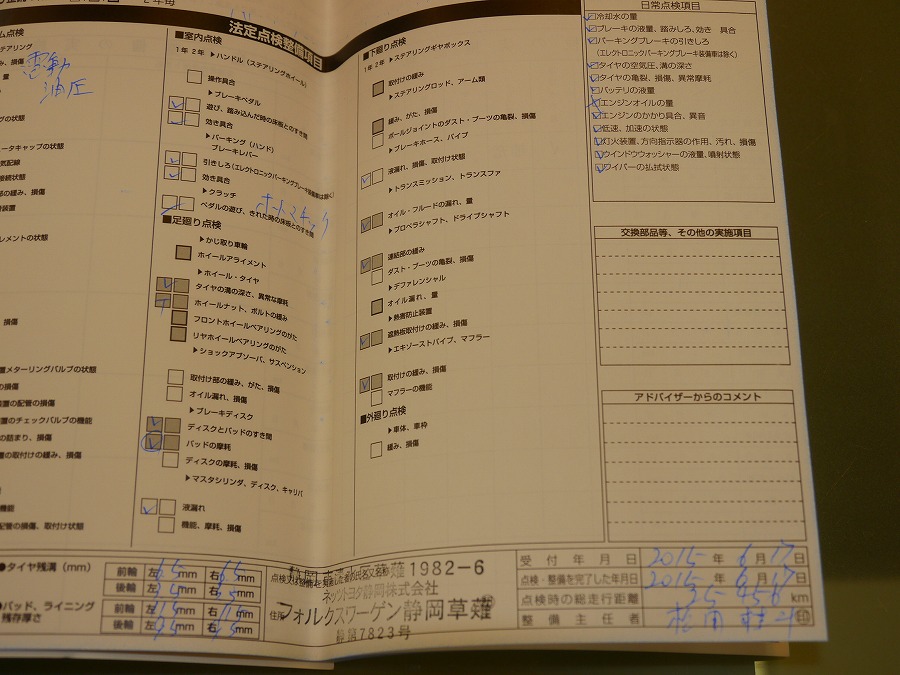 法定点検整備項目
損傷 電動
油圧
の状態
ータキャップの状態
気配線
接続状態
部の緩み、損傷
装置
レメントの状態
損傷
置メターリングバルブの状態
の損傷
装置の配管の損傷
置のチェックバルブの機能
の詰まり、損傷
置の取付けの緩み、損傷
機能
配管の損傷、取付け状態
■室内点検
1年 2年 ▶ハンドル(ステアリングホイール)
操作具合
▶ブレーキペダル
遊び、踏み込んだ時の床板とのすき間
効き具合
▶パーキング(ハンド)
ブレーキレバー
引きしろ(エレクトロニックパーキングブレーキ装備車は除く)
効き具合
▶クラッチ
ペダルの遊び、きれた時の床板とのすき間
■足廻り点検
▶かじ取り車輪
ホイールアライメント
▶ホイール・タイヤ
タイヤの溝の深さ、異常な摩耗
ホイールナット、ボルトの緩み
フロントホイールベアリングのがた
リヤホイールベアリングのがた
▶ショックアブソーバ、サスペンション
取付け部の緩み、がた、損傷
オイル漏れ、損傷
▶ブレーキディスク
ディスクとパッドのすき間
パッドの摩耗
ディスクの摩耗、損傷
▶マスタシリンダ、ディスク、キャリパ
液漏れ
機能、摩耗、損傷
■下廻り点検
1年 2年 ▶ステアリングギヤボックス
取付けの緩み
▶ステアリングロッド、アーム類
緩み、がた、損傷
ボールジョイントのダスト・ブーツの亀裂、損傷
▶ブレーキホース、パイプ
液漏れ、損傷、取付け状態
▶トランスミッション、トランスファ
オイル・フルードの漏れ、量
▶プロペラシャフト、ドライブシャフト
連結部の緩み
ダスト・ブーツの亀裂、損傷
▶デファレンシャル
オイル漏れ、量
▶熱害防止装置
遮熱板取付けの緩み、損傷
▶エキゾーストパイプ、マフラー
取付けの緩み、損傷
マフラーの機能
■外廻り点検
▶車体、車枠
緩み、損傷
日常点検項目
冷却水の量
ブレーキの液量、踏みしろ、効き 具合
パーキングブレーキの引きしろ
(エレクトロニックパーキングブレーキ装備車は除く)
タイヤの空気圧、溝の深さ
タイヤの亀裂、損傷、異常摩耗
バッテリの液量
エンジンオイルの量
エンジンのかかり具合、異音
低速、加速の状態
灯火装置、方向指示器の作用、汚れ、損傷
ウインドウウォッシャーの液量、噴射状態
ワイパーの払拭状態
交換部品等、その他の実施項目
アドバイザーからのコメント
●タイヤ残溝(mm)
前輪 左 6.5 mm 右 6.5 mm
後輪 左 mm 右 mm
●パッド、ライニング
残存厚さ
前輪 左 mm 右 mm
後輪 左 mm 右 mm
1982-6
ネッツトヨタ静岡株式会社
住所 フォルクスワーゲン静岡草薙
静認7823号
受付年月日 2015年 6月17日
点検・整備を完了した年月日 2015年 6月17日
点検時の総走行距離 35456 km
整備主任者 印